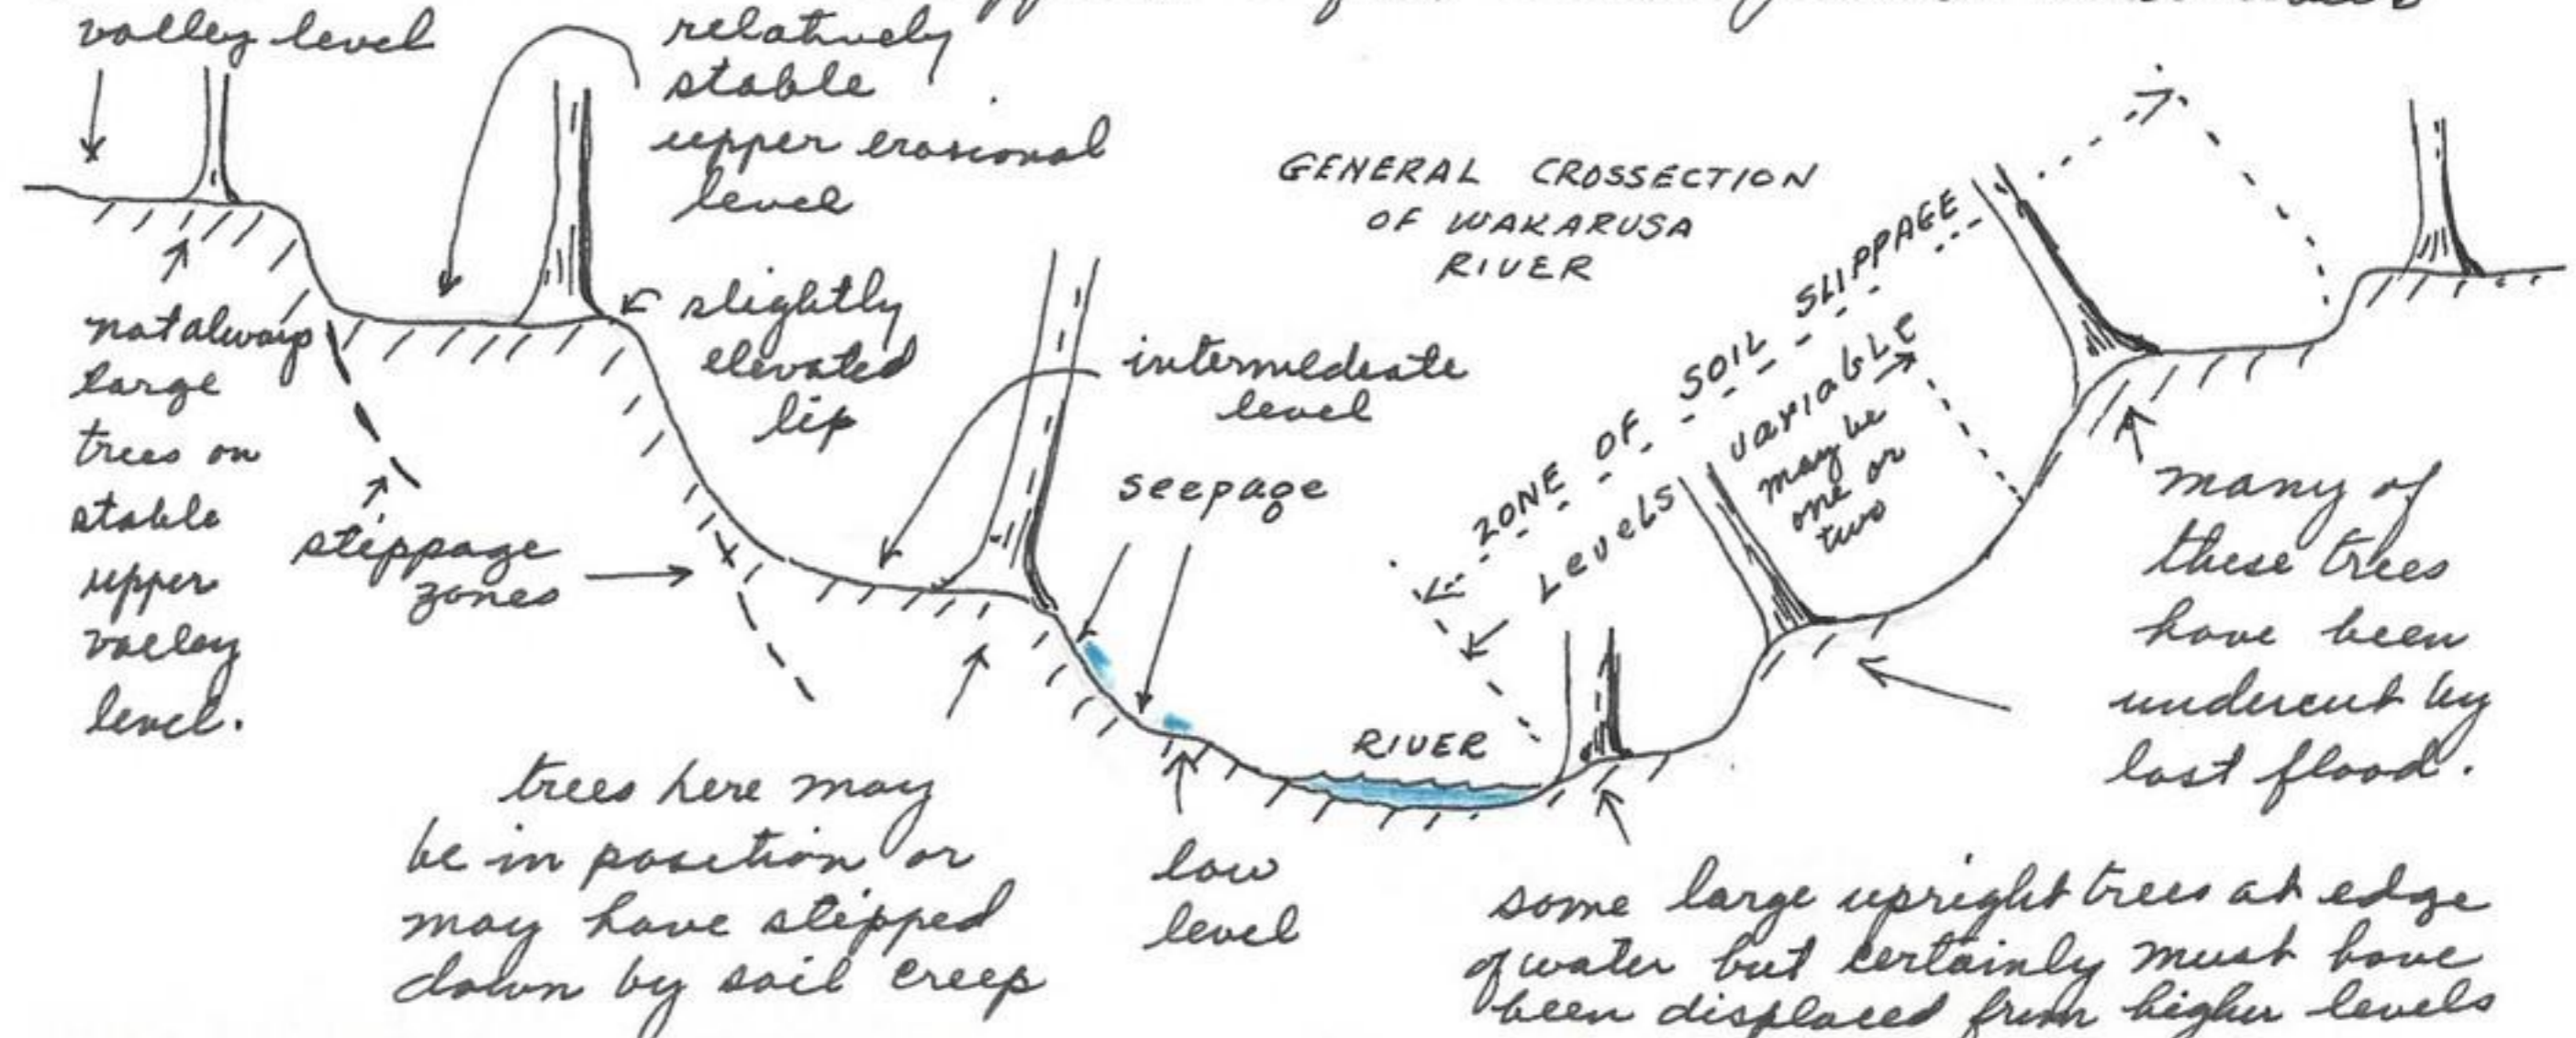 valley level
relatively
stable
upper erosional
level
GENERAL CROSSECTION
OF WAKARUSA
RIVER
slightly
elevated
lip
not always
large
trees on
stable
upper
valley
level.
slippage
zones
intermediate
level
seepage
ZONE OF SOIL SLIPPAGE
LEVELS VARIABLE
may be
one or
two
many of
these trees
have been
undercut by
last flood.
RIVER
trees here may
be in position or
may have slipped
down by soil creep
low
level
some large upright trees at edge
of water but certainly must have
been displaced from higher levels